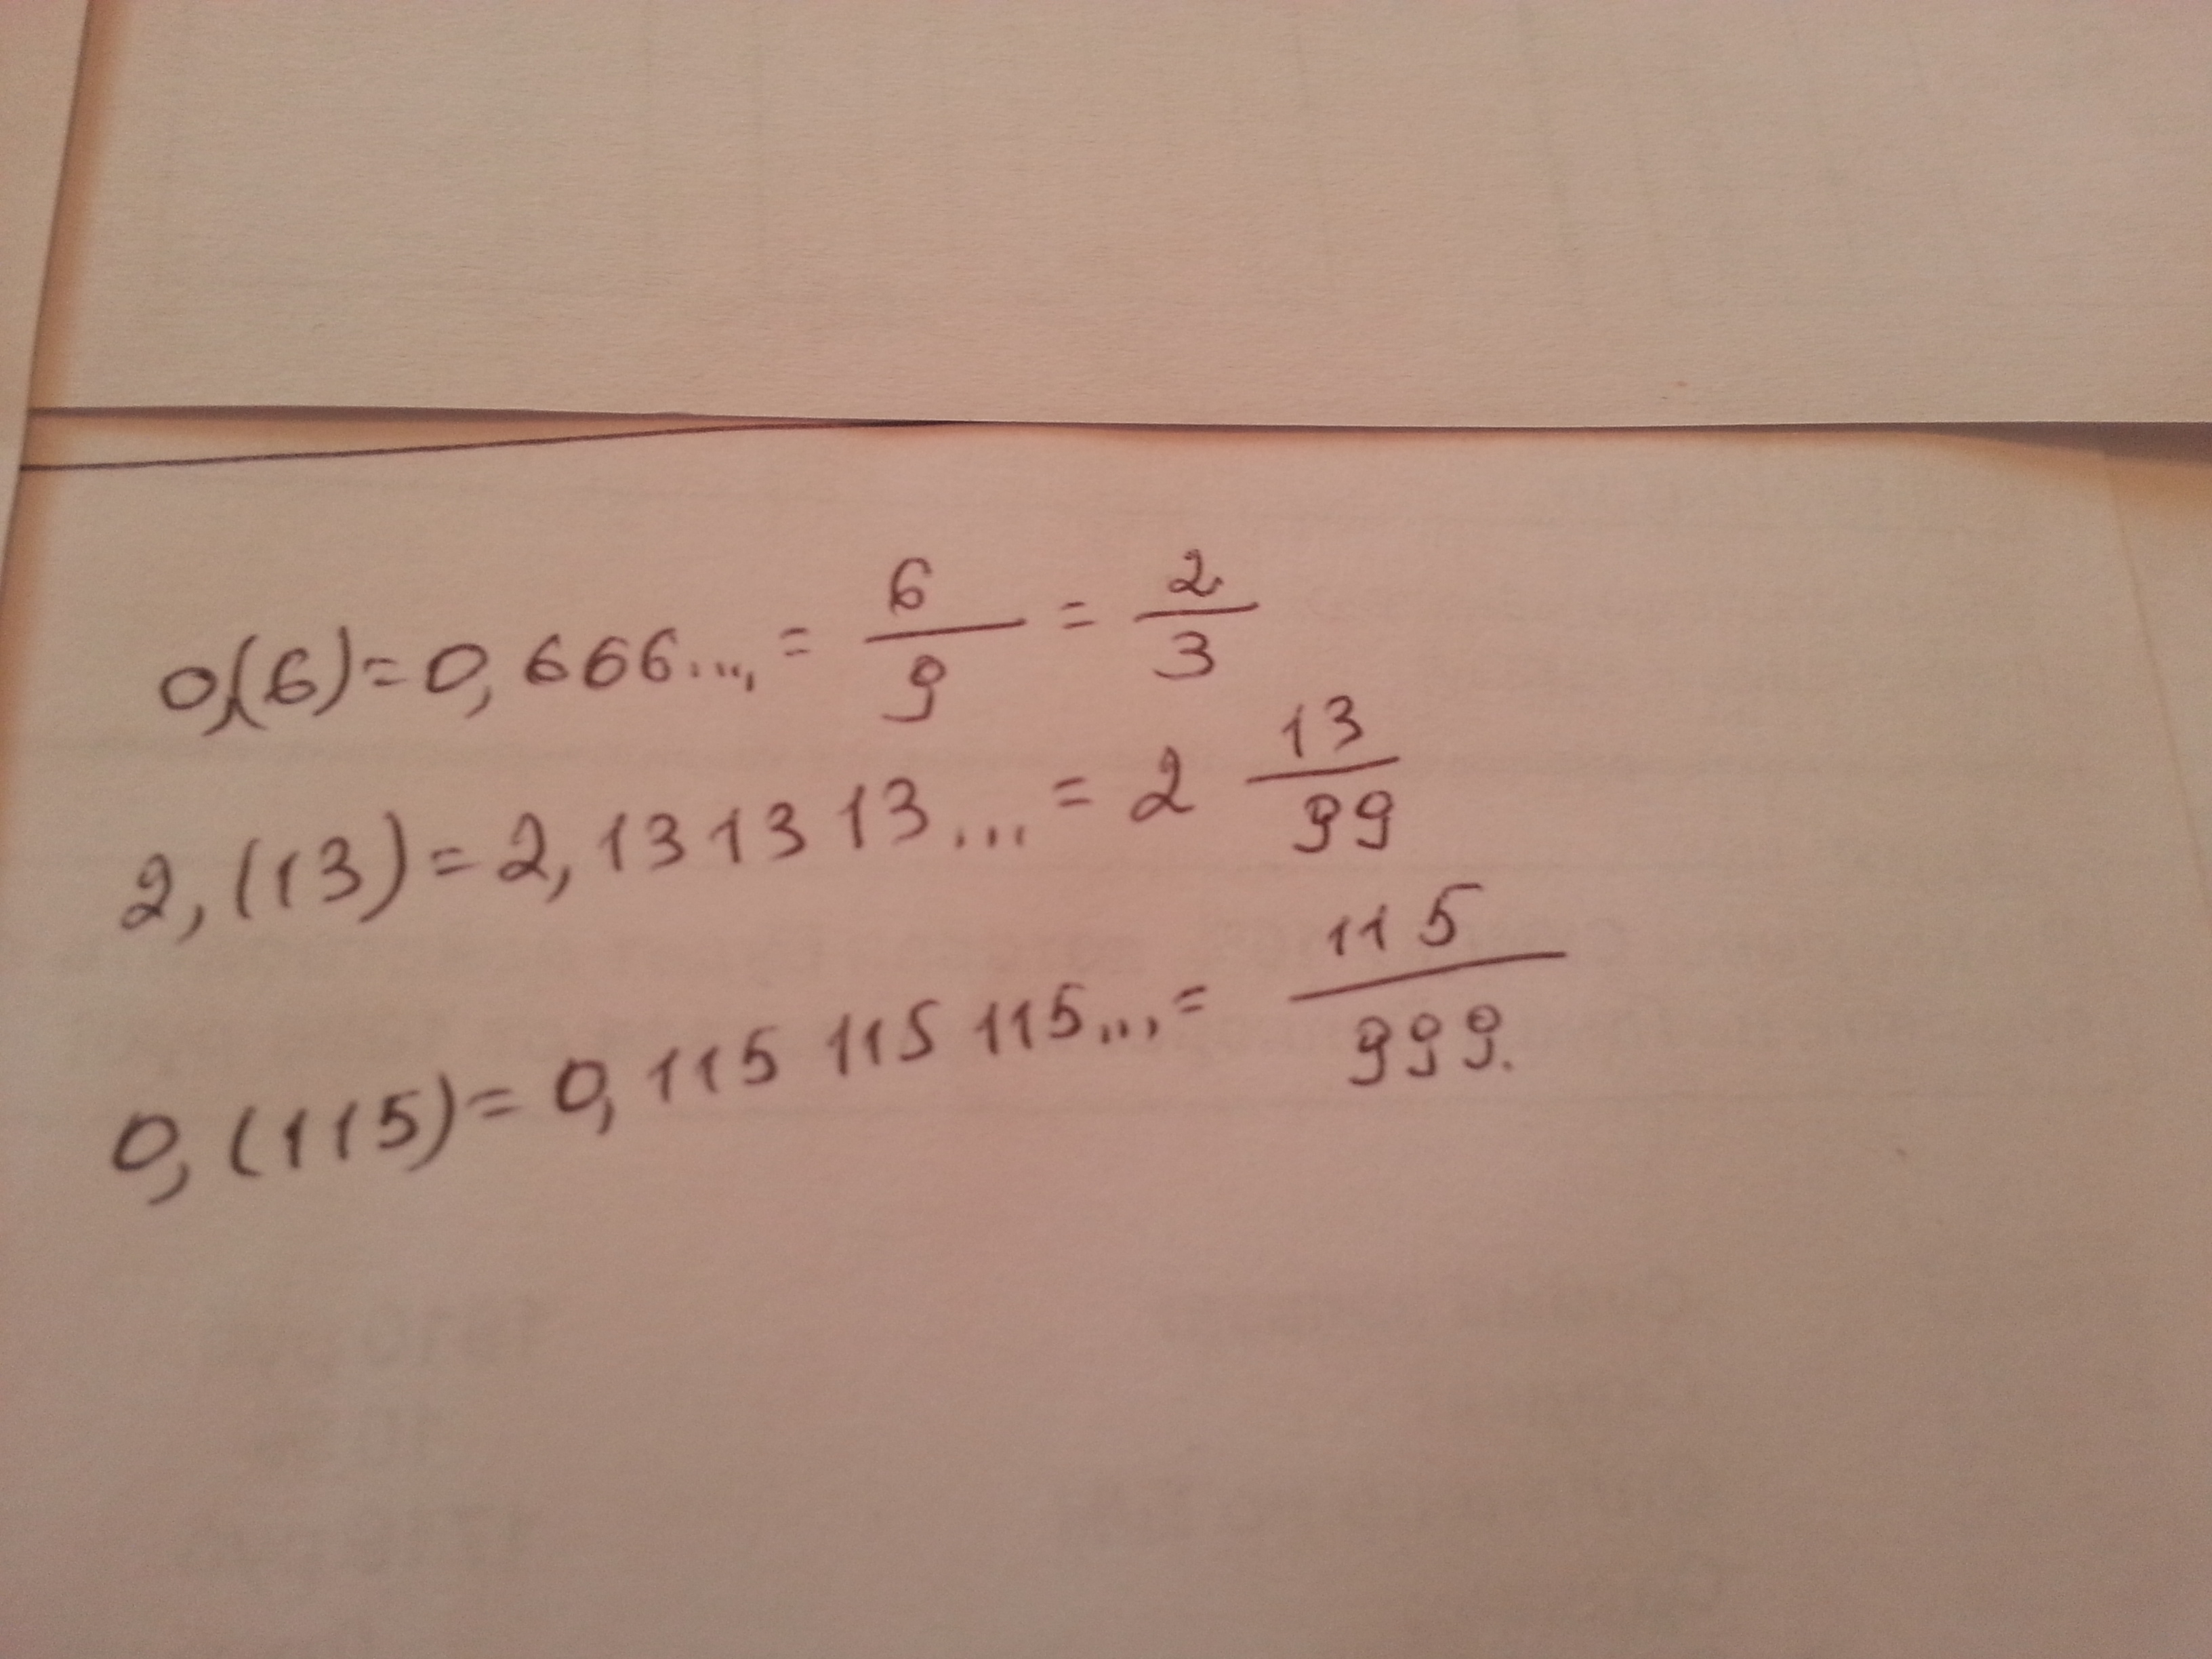 0,(6)=0,666...,= 6/9 = 2/3
2,(13)=2,131313...= 2 13/99
0,(115)=0,115 115 115...,= 115/999.